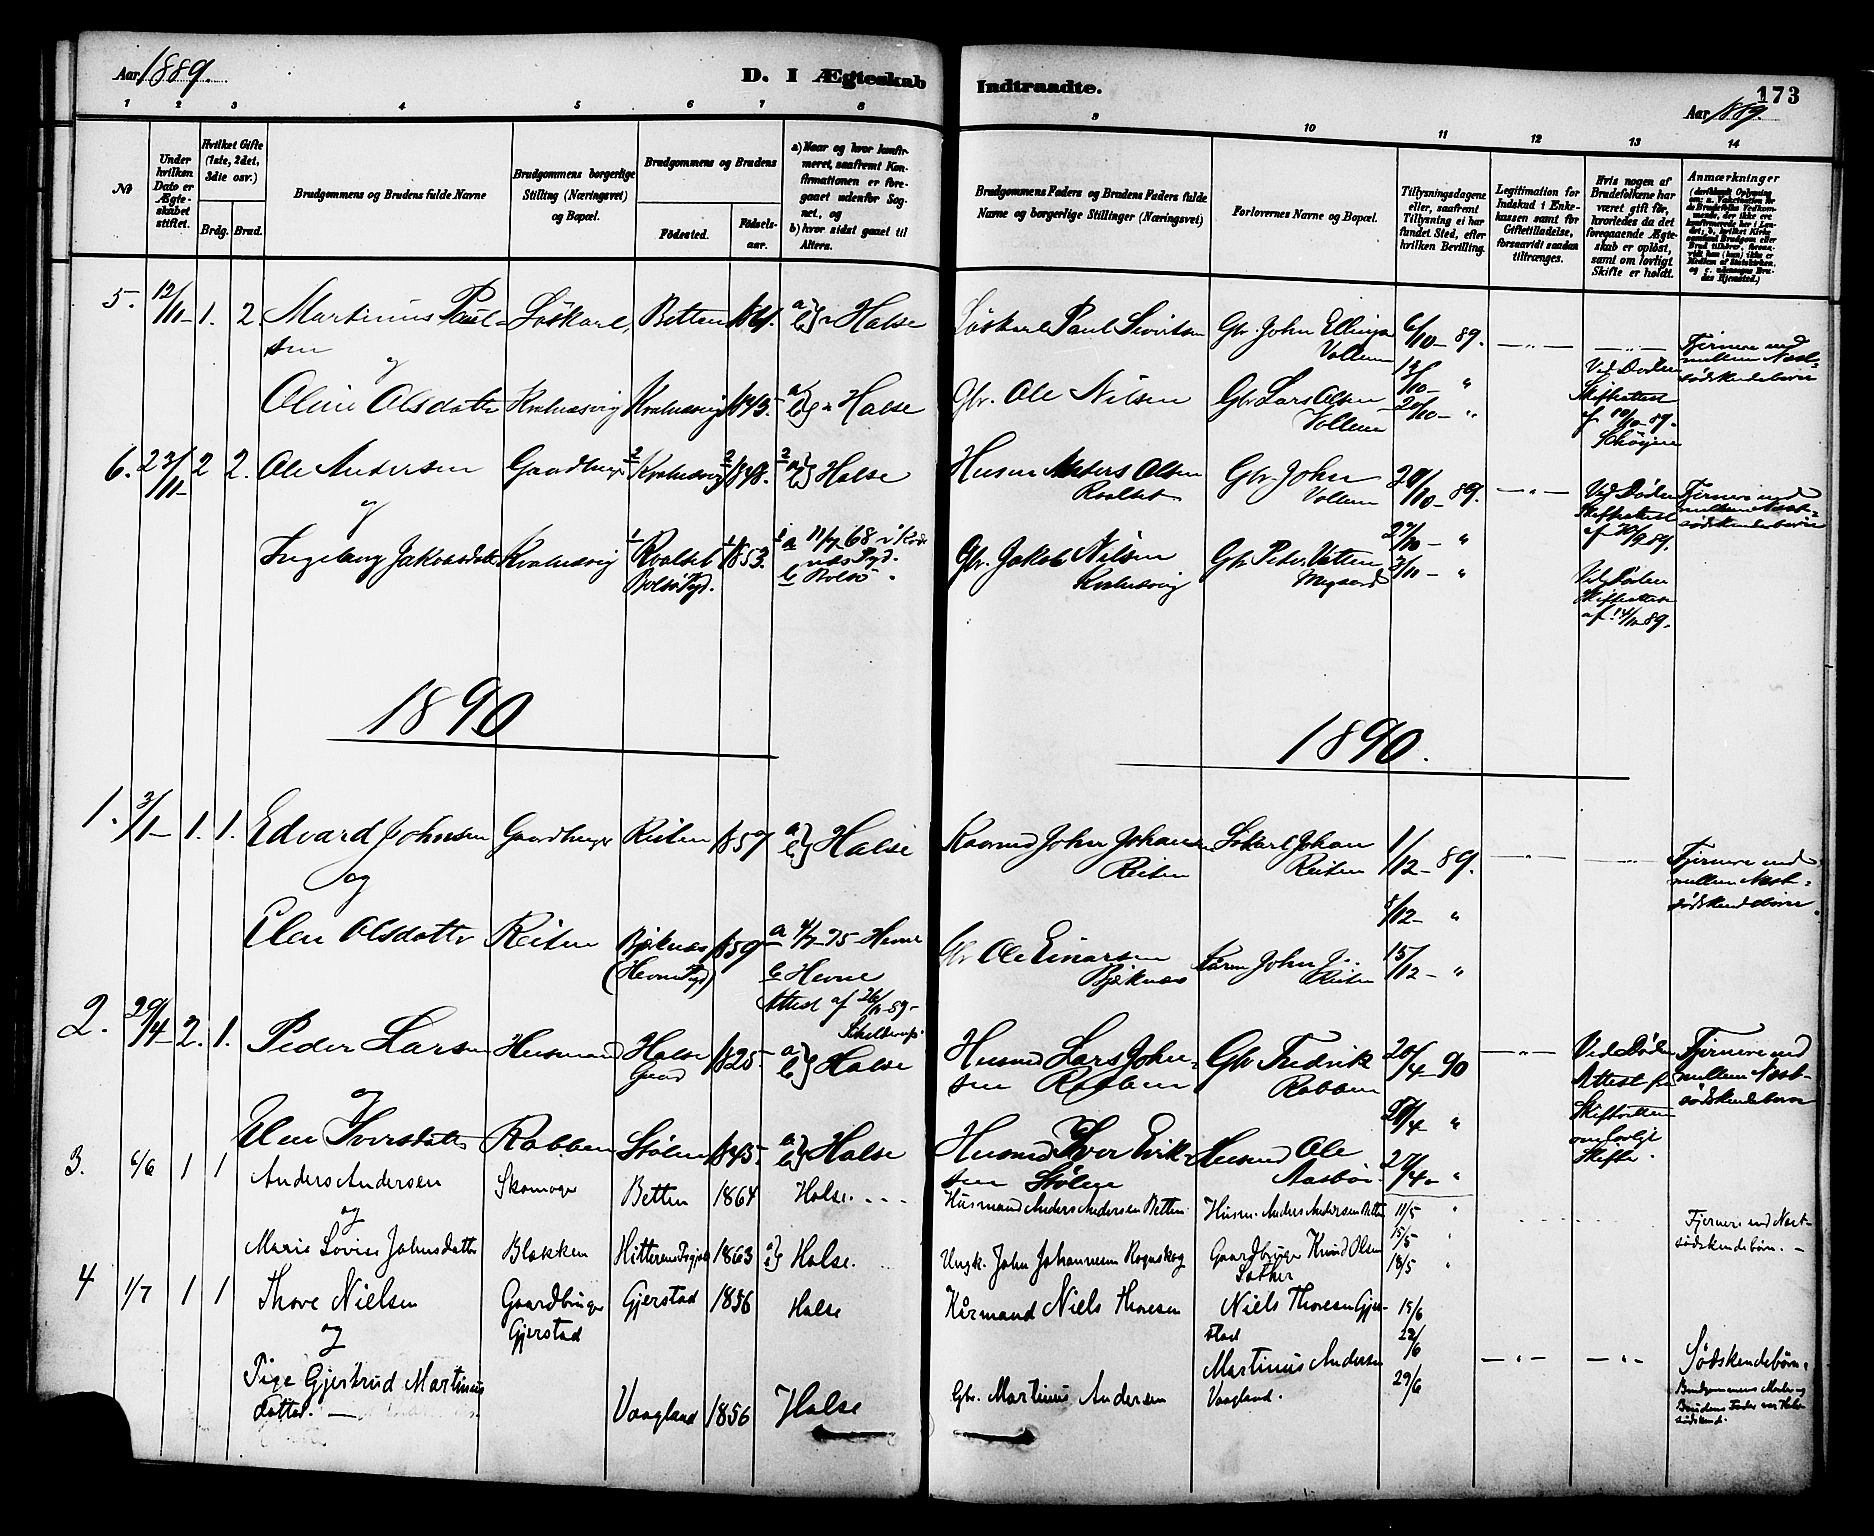 Aar 1889.
D. I Ægteskab Indtraadte.
173
Aar 1889.
1 2 3 4 5 6 7 8 9 10 11 12 13 14
No
Under hvilken Dato er Ægteskabet stiftet.
Hvilket Gifte (1ste, 2det, 3die osv.)
Brdg. Brud.
Brudgommens og Brudens fulde Navne
Brudgommens borgerlige Stilling (Næringsvei) og Bopæl.
Brudgommens og Brudens
Fødested. Fødselsaar.
a) Naar og hvor konfirmeret, saafremt Konfirmationen er foregaaet udenfor Sognet, og
b) hvor sidst gaaet til Alters.
Brudgommens Faders og Brudens Faders fulde Navne og borgerlige Stillinger (Næringsvei)
Forlovernes Navne og Bopæl.
Tillysningsdagene eller, saafremt Tillysning ei har fundet Sted, efter hvilken Bevilling.
Legitimation for Indskud i Enkekassen samt for Giftetilladelse, forsaavidt saadan tiltrænges.
Hvis nogen af Brudefolkene har været gift før, hvorledes da det foregaaende Ægteskab er opløst, samt om lovligt Skifte er holdt.
Anmærkninger
5. 12/11 1. 2. Martinius Paulsen Løskarl, Betten 1864. a b) Halse Løskarl Paul Sivertsen Gbr. John Ellingsen Vollem 6/10 - 89. Fjernere end mellem Næstsødskendebørn
og
Oline Olsdatter Kvalnesvig Kvalnesvig 1843. a b) Halse Gbr. Ole Nilsen Gbr Lars Olsen Vollem 13/10 - " 20/10 - " Ved Døden Skifteattest af 10/10-89.
6. 23/11 2 2. Ole Andersen Gaardbruger 2 Kvalnesvig 2 1848. a b) Halse Husm Anders Olsen Gbr John Vollem 20/10 89. Ved Døden Skifteattest Fjernere end mellem Næstsødskendebørn
og
Ingeborg Jakobsdatter Kvalnesvig 1 Bolsø Pgd. 1 1853. a 11/7 68 b Bolsø Gbr. Jakob Nilsen Kvalnesvig 27/10 - " 3/10 - " Ved Døden Skifteattest af 14/10 89.
1890
1890.
1. 3/1 1. 1. Edvard Johnsen Gaardbruger Reiten 1857 a b) Halse Kaarmd John Johansen Reiten Løskarl Johan Reiten 1/12 - 89. Fjernere end mellem Næstsødskendebørn
og
Elen Olsdatter Reiten Bjeknæs (Hevne Pgd) 1859 a 4/7-75 Hevne Gbr Ole Einarsen Bjeknæs Reiten 8/12 - " 15/12 - "
b Hevne
Attest af 26/11-89
2. 29/4 2. 1. Peder Larsen Husmand Halse Gaard 1825. a b) Halse Husmd Lars Johnsen Rabben Gbr Fredrik Rabben 20/4 - 90 Ved Døden Attest fra Skifteretten om lovligt Skifte. Fjernere end mellem Næstsødskendebørn
og
Elen Iversdatter Rabben Stølen 1845. a b) Halse Husmd Iver Eriksen Stølen Husmd Ole Aasbøe 27/4 - "
3. 6/6 1 1 Anders Andersen Skomager Betten 1864 Halse. Husmand Anders Andersen Betten Husm. Anders Andersen Betten 11/5 "
og
Marie Lovise Johnsdatter Blakken Hitterens Pgjeld 1863 Halse. Ungk. John Johannesen Rognskog Gaardbruger Knud Olsen Sather 15/5 " 18/5 " Fjernere end Næstsødskendebørn.
4 1/7 1 1 Thore Nielsen Gaardbruger Gjerstad Gjerstad 1856 Halse Kårmand Niels Thoresen Niels Thoresen Gjerstad 15/6 22/6
og
Pige Gjertrud Martinusdatter. Vaagland 1856 Halse Gbr. Martinus Andersen Martinus Andersen Vaagland. 29/6 Sødskendebørn.
Brudgommens Moder og Brudens Fader var Halvsødskend.